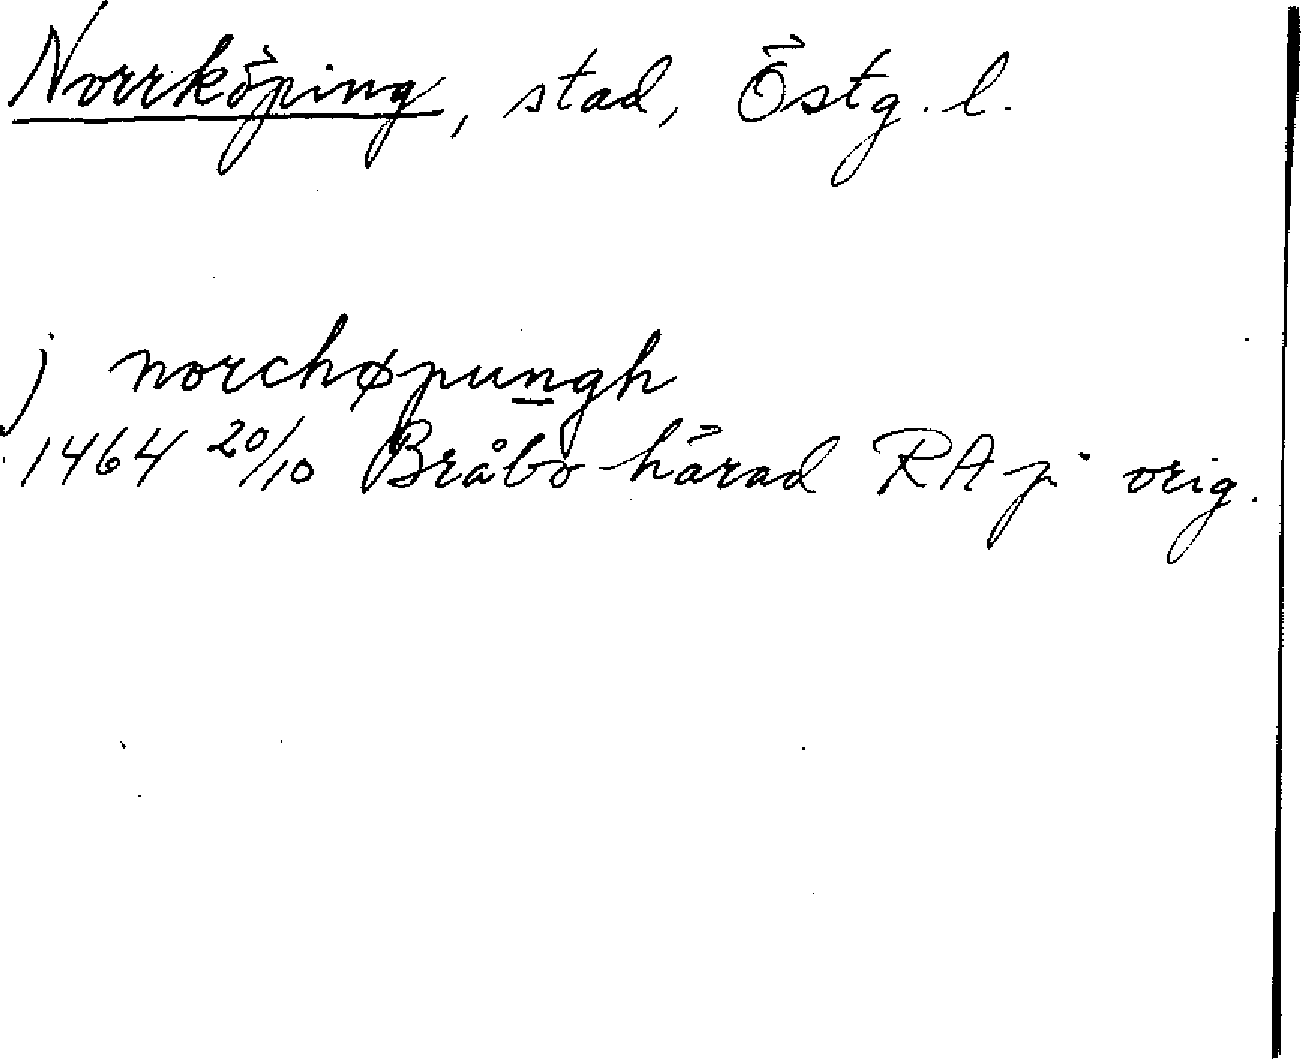 Norrköping, stad, Östg. l.
j norchøpungh
1464 20/10 Bråbo härad RAp orig.